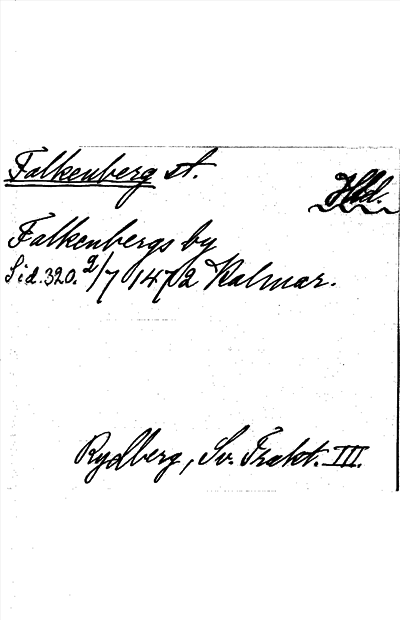 Falkenberg st.
Hld.
Falkenbergs by
Sid. 320. 2/7 1472 Kalmar.
Rydberg, Sv. Trakt. III.